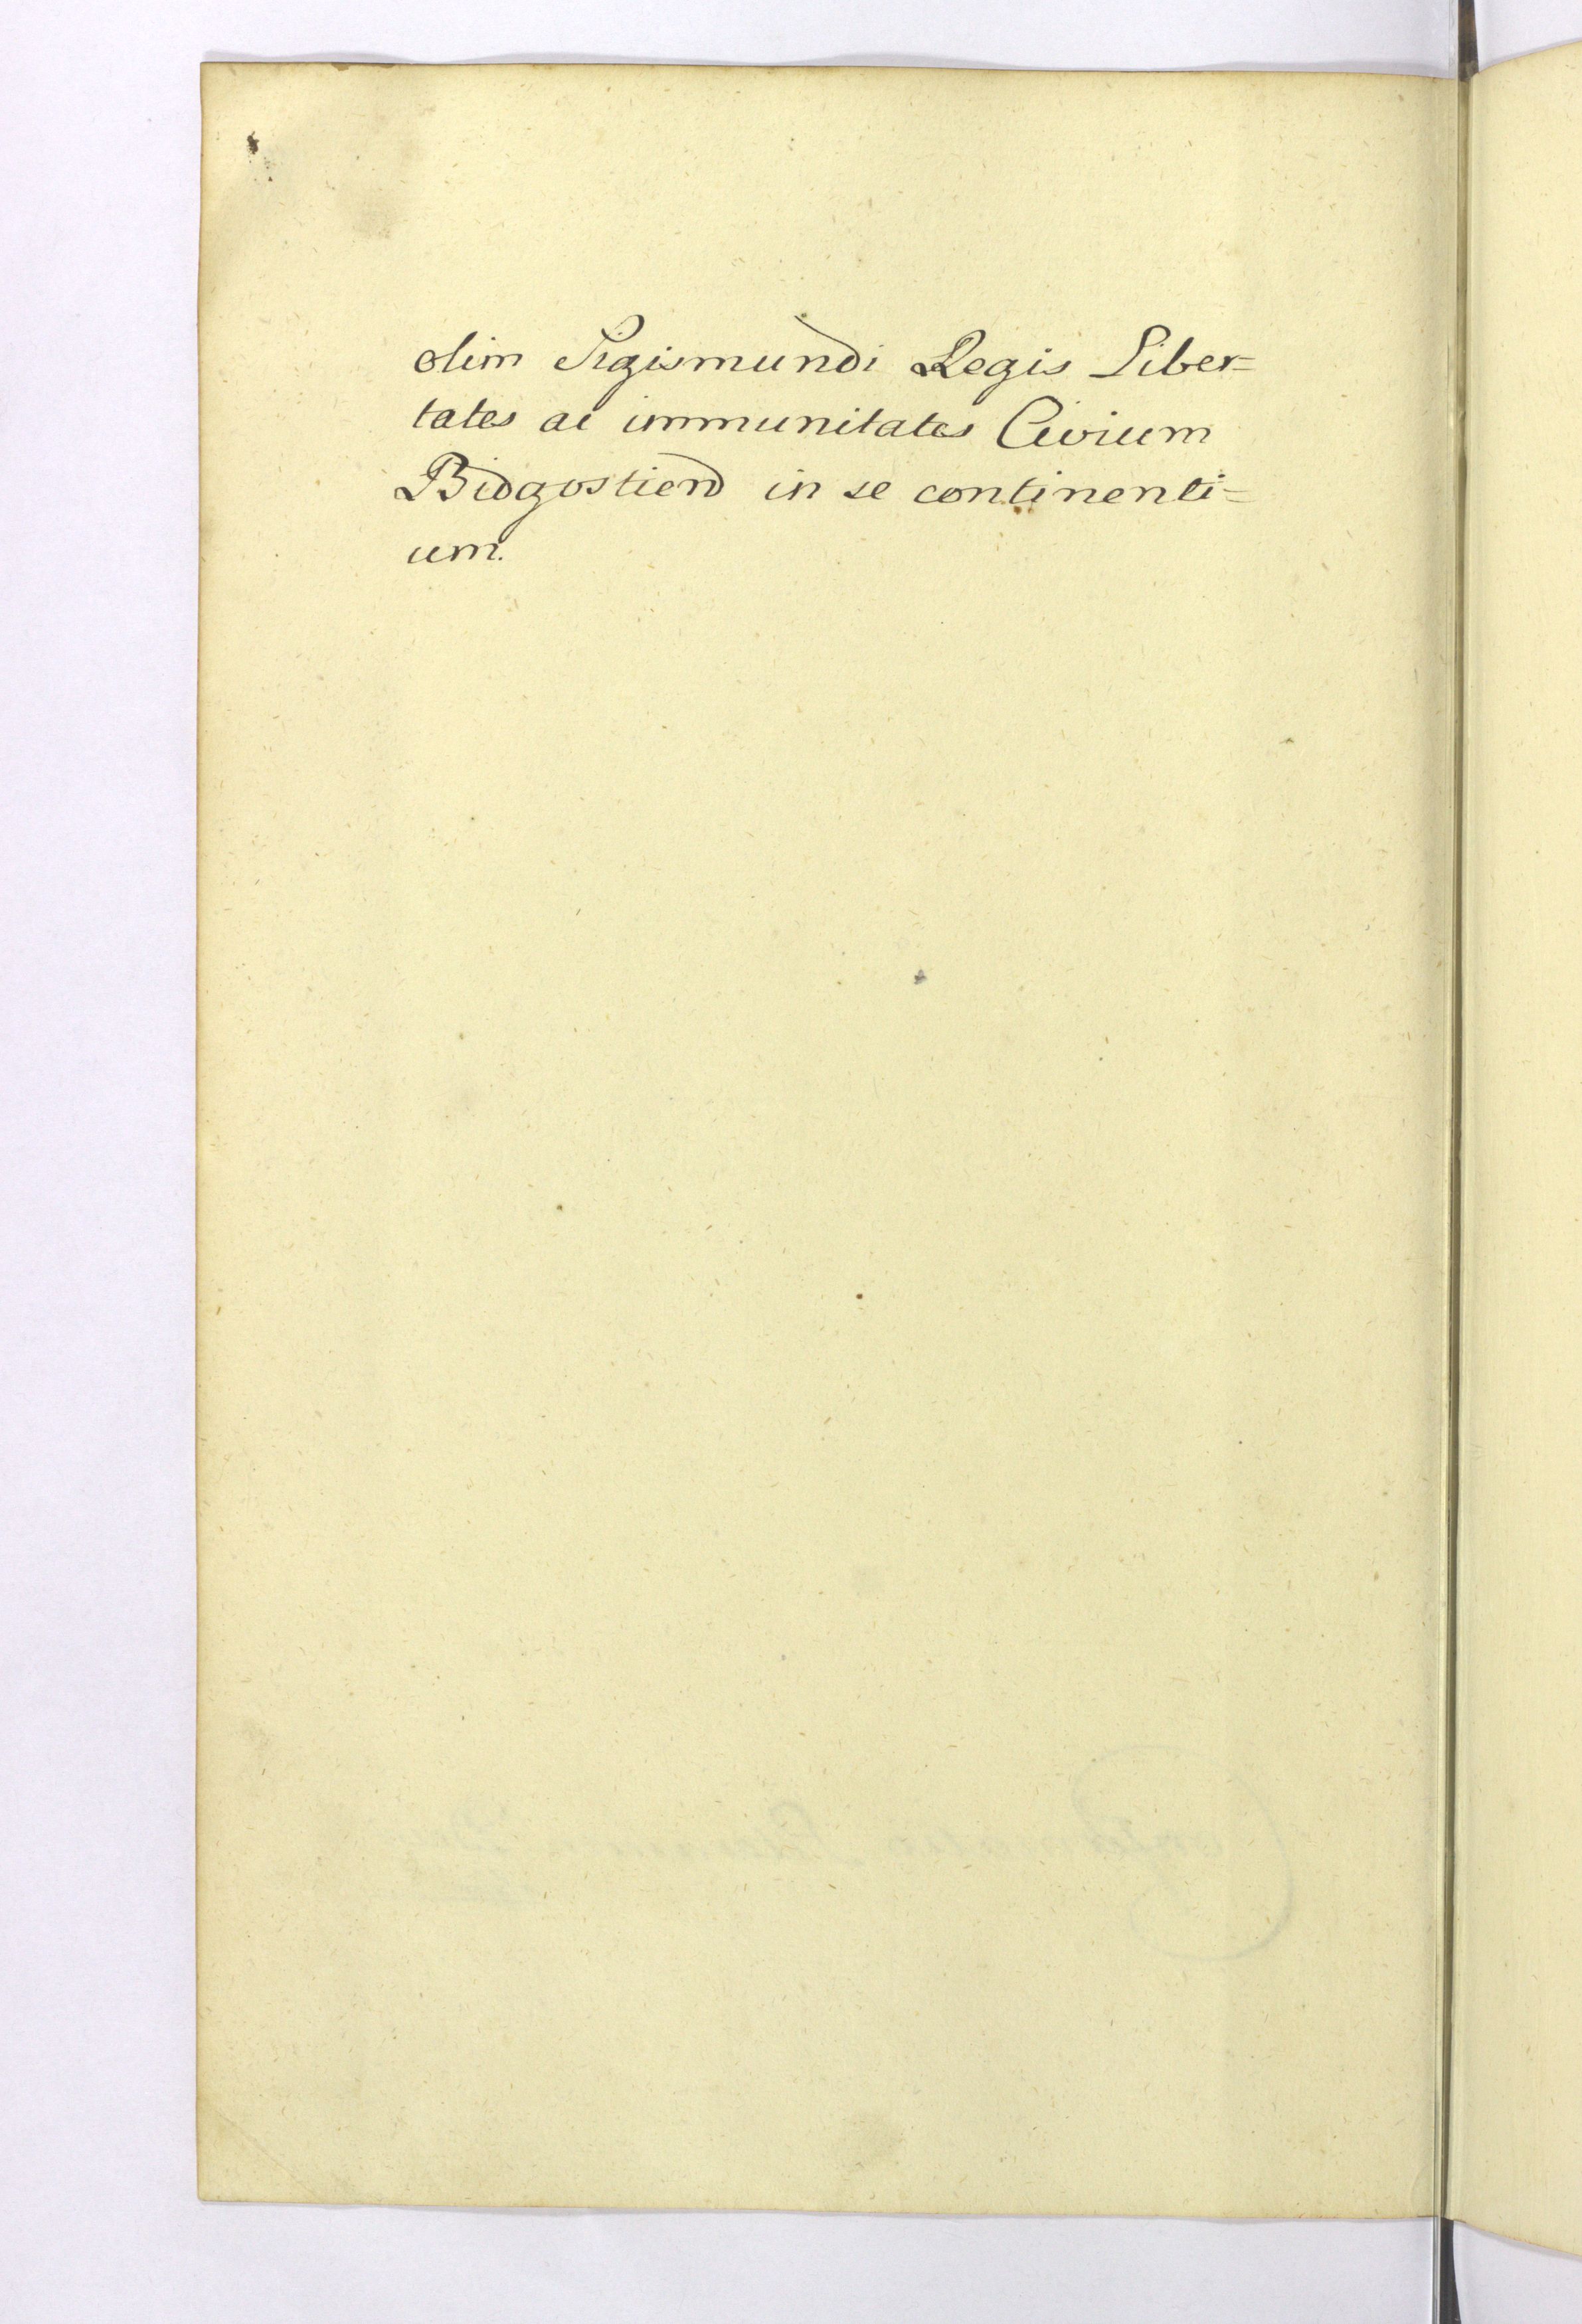 olim Sigismundi Regis Liber=
tates ac immunitates Civium
Bidgostien in se continenti=
um.